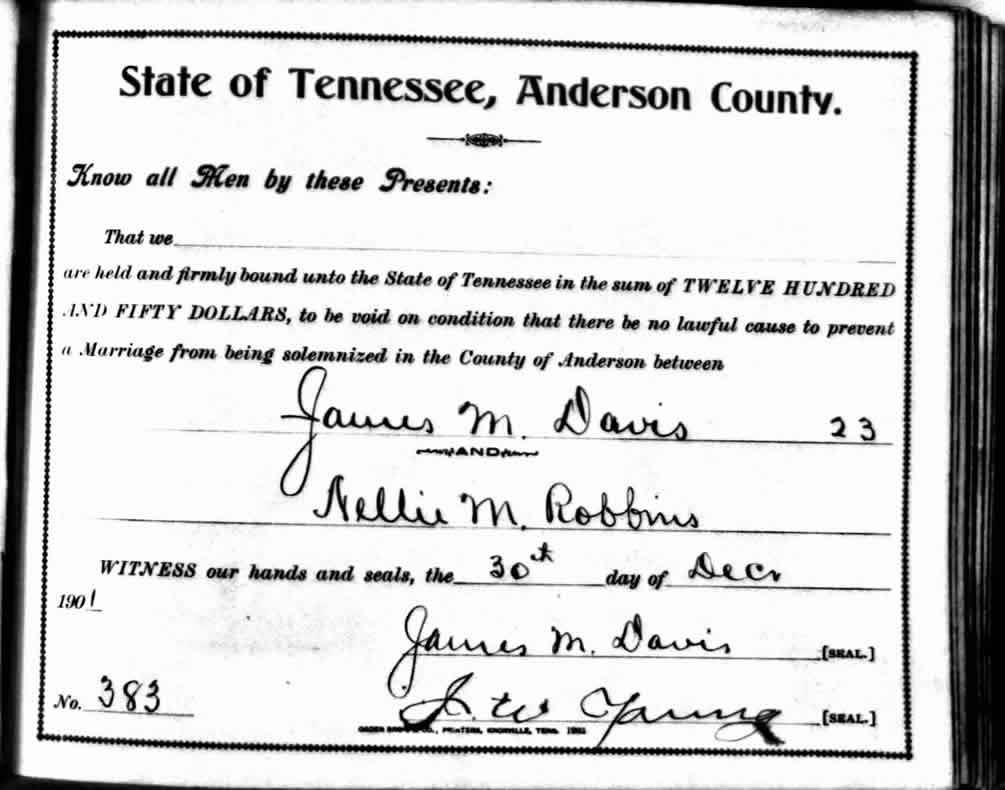 State of Tennessee, Anderson County.
Know all Men by these Presents:
That we
are held and firmly bound unto the State of Tennessee in the sum of TWELVE HUNDRED
AND FIFTY DOLLARS, to be void on condition that there be no lawful cause to prevent
a Marriage from being solemnized in the County of Anderson between
James M. Davis 23
AND
Nellie M. Robbins
WITNESS our hands and seals, the 30th day of Decr
1901
James M. Davis [SEAL.]
No. 383
Young [SEAL.]
PRINTERS, KNOXVILLE, TENN.